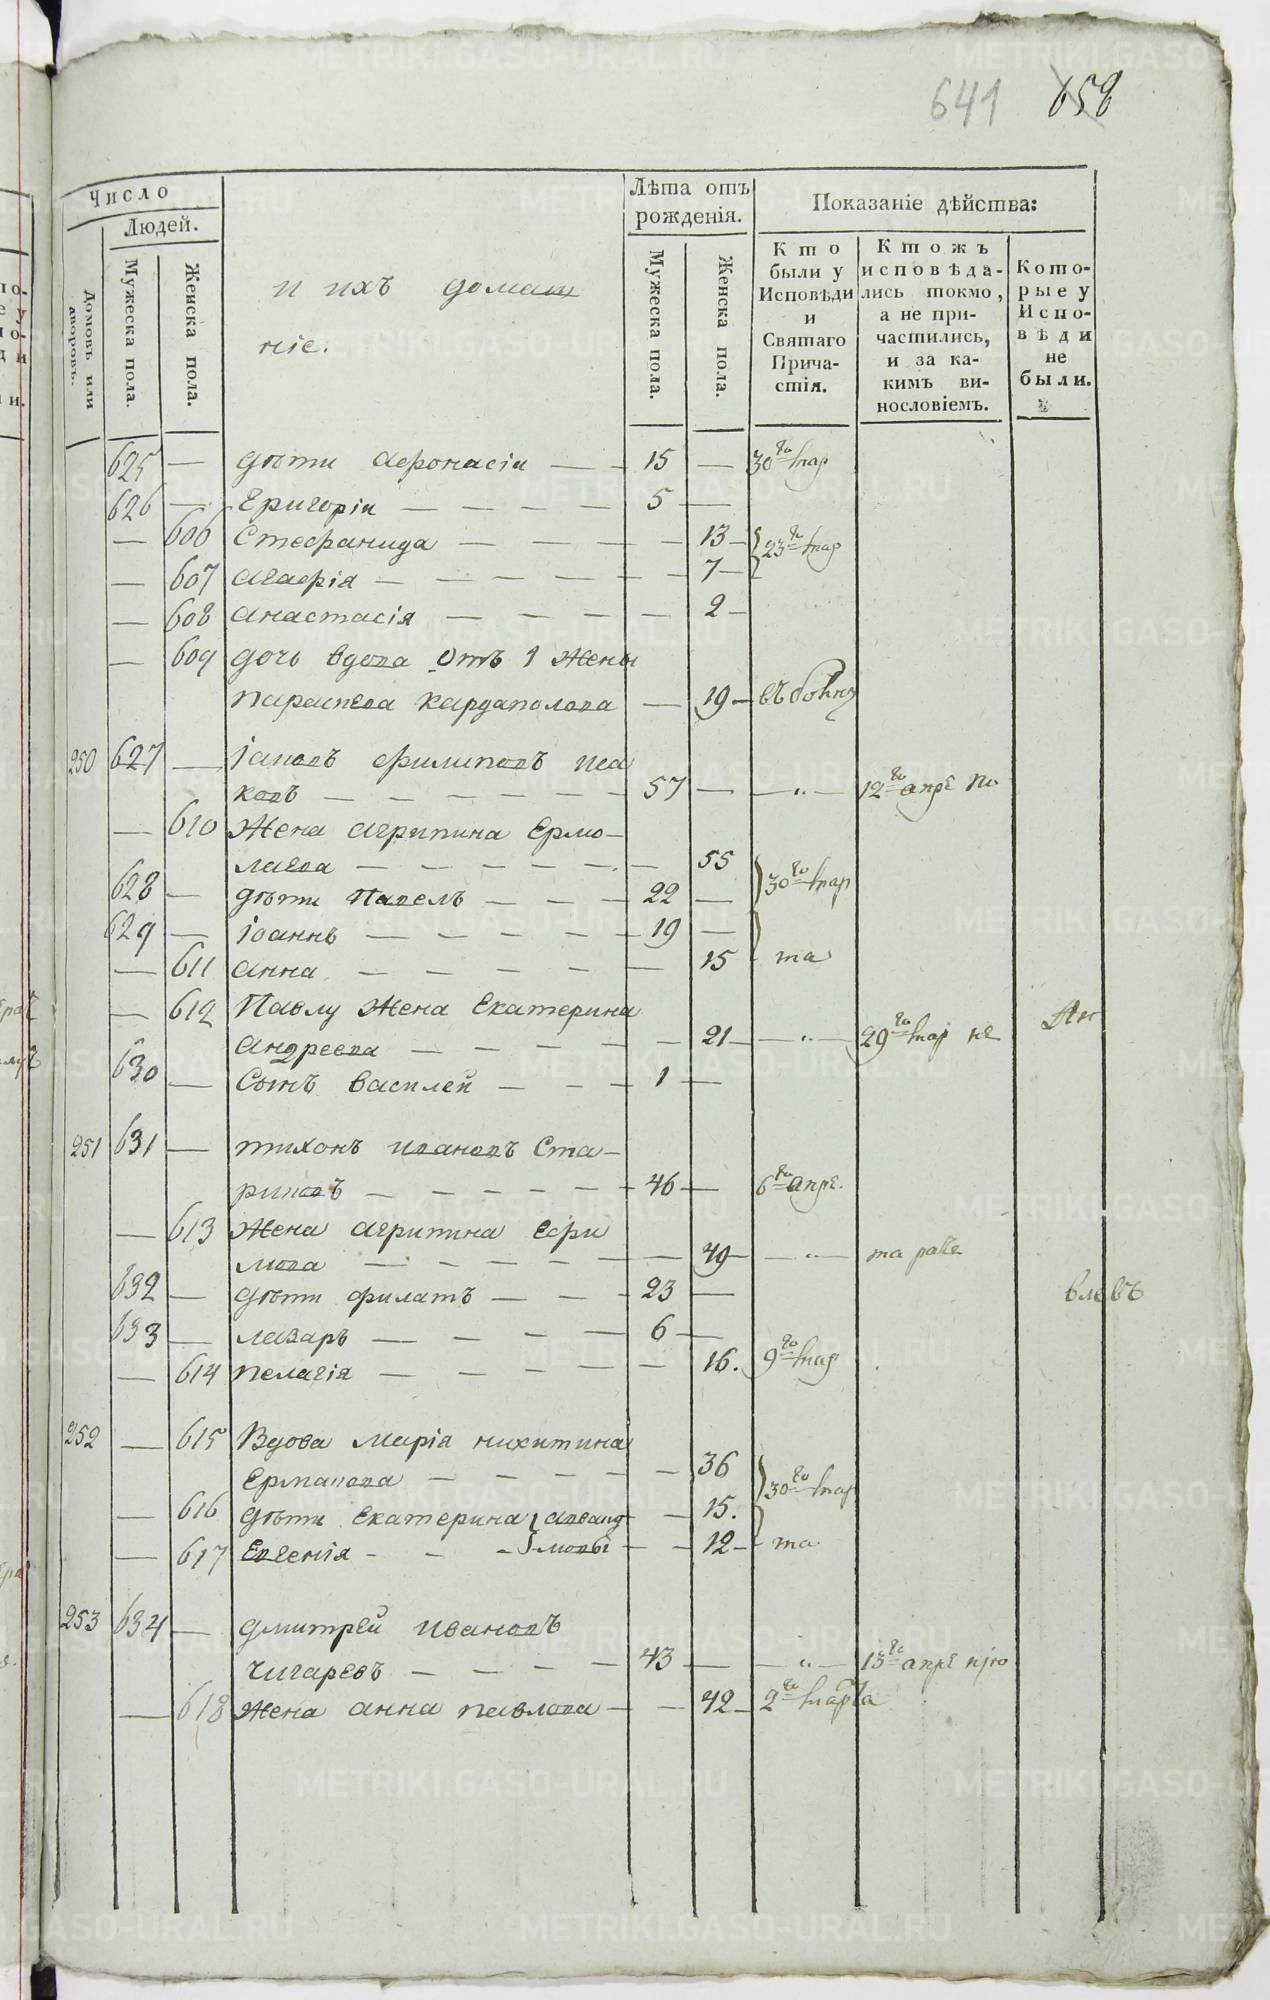 641 658
Число
Людей.
Домовъ или дворовъ.
Мужеска пола.
Женска пола.
и ихъ домаш
ніе.
Лѣта отъ рожденія.
Мужеска пола.
Женска пола.
Показаніе дѣйства:
Кто были у Исповѣди и Святаго Причастія.
Ктожъ исповѣдались токмо, а не причастились, и за какимъ винословіемъ.
Которые у Исповѣди не были.
625 — дѣти Афонасіи — — 15 — 30го мар
626 — Григоріи — — — — 5 —
— 606 Стефанида — — — — 13 — 23го мар
— 607 Агафія — — — — — 7 —
— 608 Анастасія — — — — 2 —
— 609 дочь вдова отъ 1 жены
Параскева Кардаполова — 19 —
250 627 — филиповъ
ковъ — — — — — 57 — — „ — 12го апре по
— 610 Жена Агрипина Ермо-
лаева — — — — — 55
628 — дѣти Павелъ — — — 22 — 30го мар
629 — Іоаннъ — — — — — 19 —
— 611 Анна — — — — — 15 та
— 612 Павлу Жена Екатерина
Андреева — — — — — 21 — — „ — 29го мар не
630 — Сынъ Василей — — — 1 —
251 631 — Тихонъ Ивановъ Ста-
риковъ — — — — — 46 — 6го апре.
— 613 Жена Агрипина Ефи
мова — — — — — 49 — — „ — та
632 — дѣти Филатъ — — — 23 —
633 — Лазарь — — — — 6 —
— 614 Пелагія — — — — — 16. 9го мар
252 — 615 Вдова Марія Никитина
Ермакова — — — — — 36 30го мар
— 616 дѣти Екатерина — 15.
— 617 Евгенія — — — — 12 — та
253 634 — Дмитрей Ивановъ
Чигаревъ — — — — 43 — — „ — 13го апре
— 618 Жена Анна Павлова — — 42 — 2го марта
METRIKI.GASO-URAL.RU